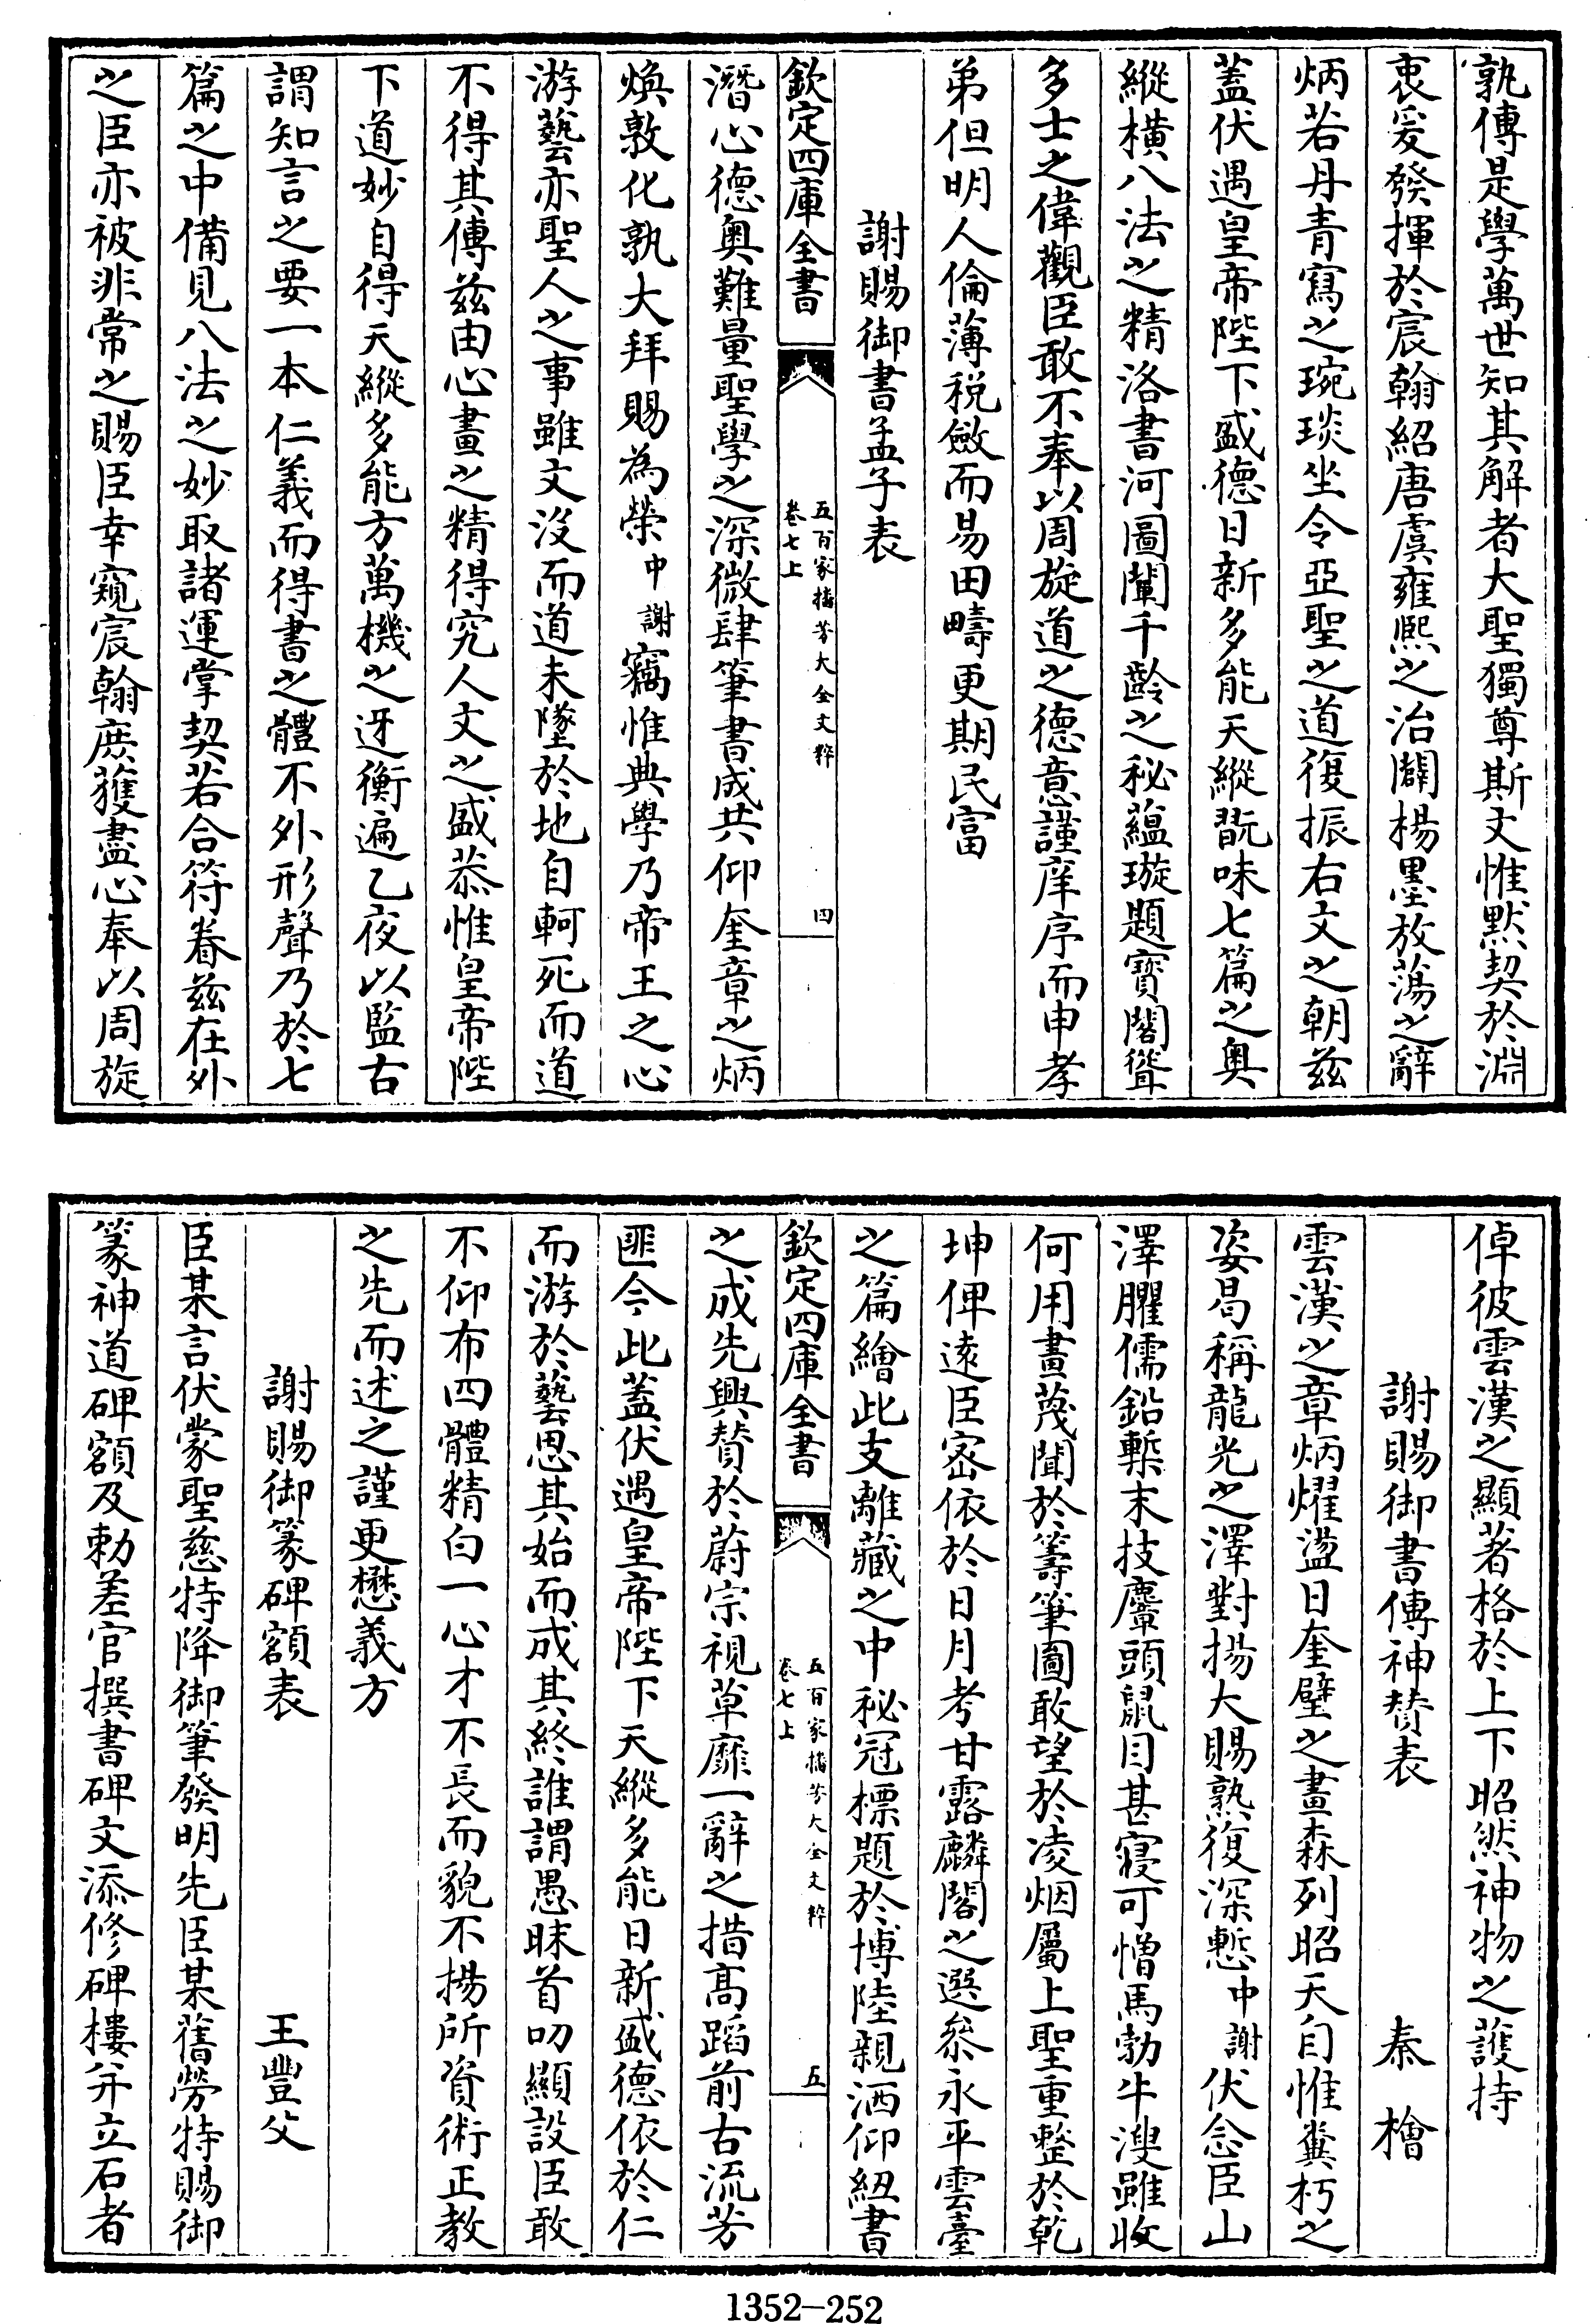 孰傳是學萬世知其解者大聖獨尊斯文惟默契於淵
衷爰發揮於宸翰紹唐虞雍熙之治闢楊墨放蕩之辭
炳若丹青寫之琬琰坐令亞聖之道復振右文之朝兹
蓋伏遇皇帝陛下盛德日新多能天縱翫味七篇之奥
縱横八法之精洛書河圖闡千齡之秘藴璇題寳閣聳
多士之偉觀臣敢不奉以周旋道之德意謹庠序而申孝
弟但明人倫薄税斂而易田疇更期民富
謝賜御書孟子表
欽定四庫全書
五百家播芳大全文粹
卷七上
四
潛心德奥難量聖學之深微肆筆書成共仰奎章之炳
煥敦化孰大拜賜為榮中謝竊惟典學乃帝王之心
游藝亦聖人之事雖文没而道未墜於地自軻死而道
不得其傳兹由心畫之精得究人文之盛恭惟皇帝陛
下道妙自得天縱多能方萬機之迓衡遍乙夜以監古
謂知言之要一本仁義而得書之體不外形聲乃於七
篇之中備見八法之妙取諸運掌契若合符眷兹在外
之臣亦被非常之賜臣幸窺宸翰庶獲盡心奉以周旋
倬彼雲漢之顯著格於上下昭然神物之護持
謝賜御書傳神贊表 秦檜
雲漢之章炳燿盪日奎壁之畫森列昭天自惟糞朽之
姿曷稱龍光之澤對揚大賜熟復深慙中謝伏念臣山
澤臞儒鉛槧末技麞頭鼠目甚寢可憎馬勃牛溲雖收
何用畫蔑聞於籌筆圖敢望於凌烟屬上聖重整於乾
坤俾逺臣宻依於日月考甘露麟閣之選叅永平雲臺
之篇繪此支離藏之中秘冠標題於博陸親洒仰紐書
欽定四庫全書
五百家播芳大全文粹
卷七上
五
之成先興贊於蔚宗視草靡一辭之措髙蹈前古流芳
匪今此蓋伏遇皇帝陛下天縱多能日新盛德依於仁
而游於藝思其始而成其終誰謂愚昧首叨顯設臣敢
不仰布四體精白一心才不長而貌不揚所資術正教
之先而述之謹更懋義方
謝賜御篆碑額表 王豐父
臣某言伏蒙聖慈特降御筆發明先臣某舊勞特賜御
篆神道碑額及勅差官撰書碑文添修碑樓并立石者
1352—252